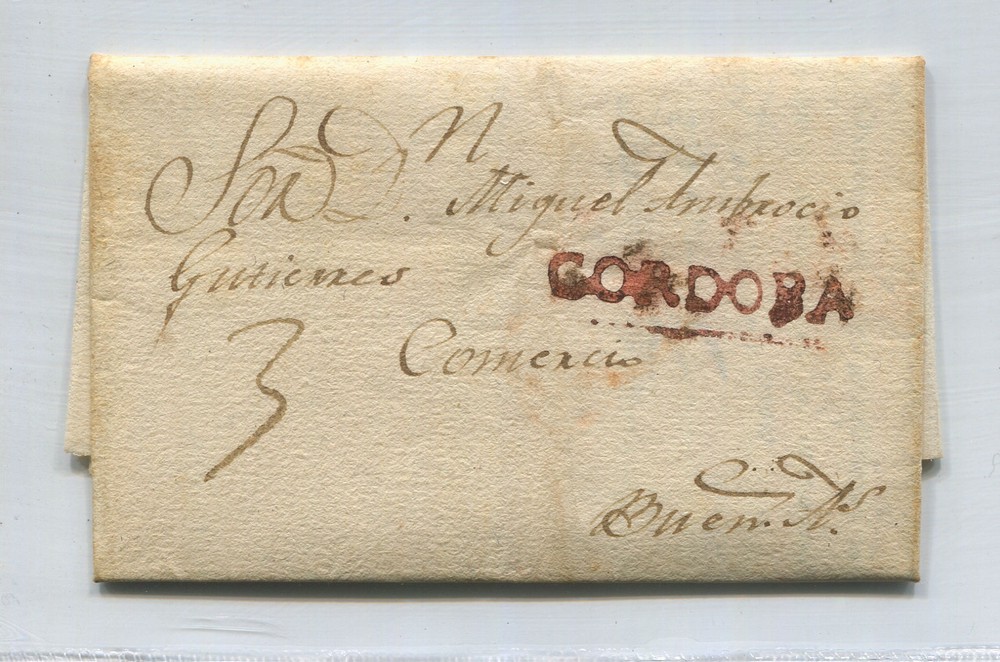 Sor. D.n Miguel Ambrocio
Gutierres
CORDOBA
3
Comercio
Buen.s A.s